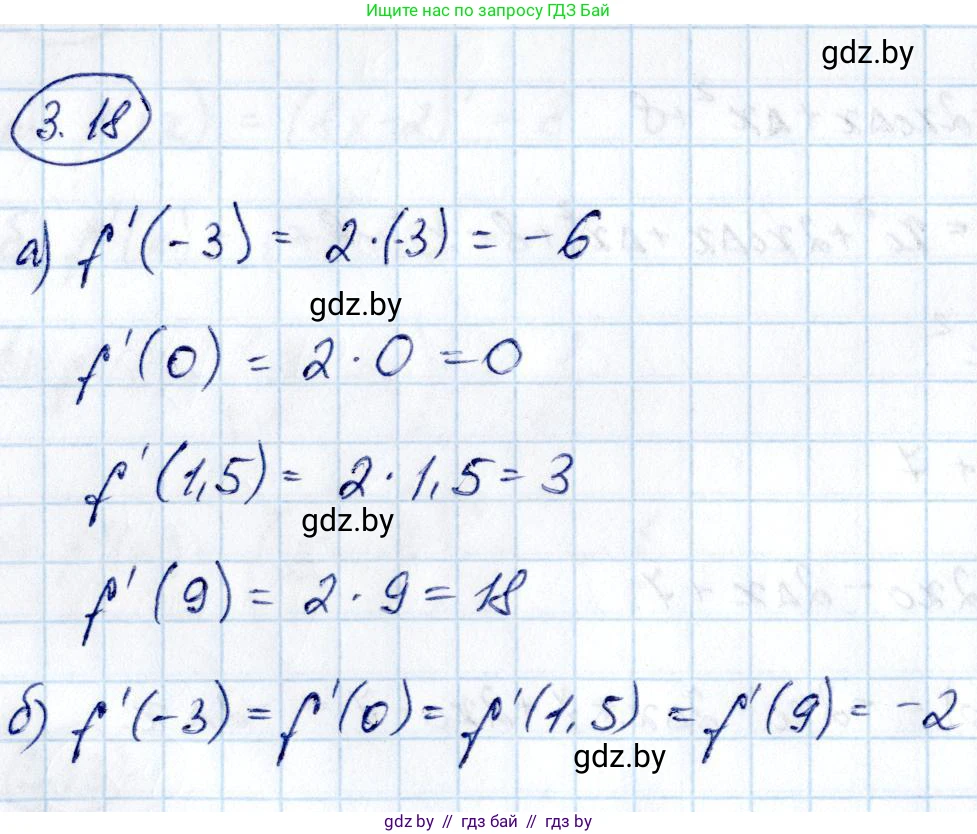 Ищите нас по запросу ГДЗ Бай
gdz.by
3.18
а) f'(-3) = 2·(-3) = -6
gdz.by
f'(0) = 2·0 = 0
f'(1,5) = 2·1,5 = 3
gdz.by
f'(9) = 2·9 = 18
б) f'(-3) = f'(0) = f'(1,5) = f'(9) = -2
gdz.by
gdz.by // гдз бай // гдз by